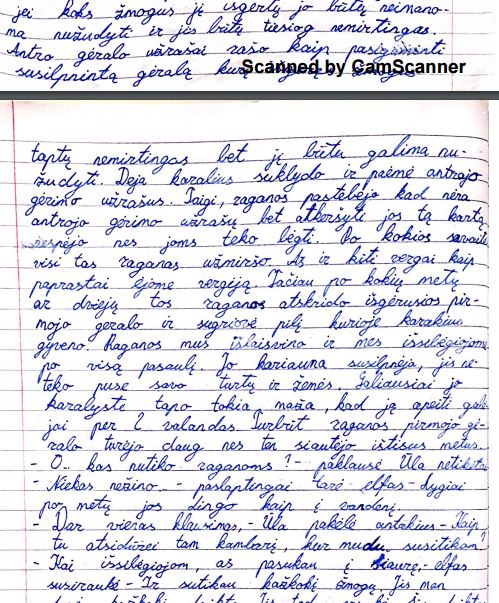 jei koks žmogus jį išgertų jo būtų neįmano-
ma nužudyti ir jis būtų tiesiog nemirtingas.
Antro gėralo užrašai rašo kaip pasigaminti
susilpnintą gėralą kurį
Scanned by CamScanner
taptų nemirtingas bet jį būtu galima nu-
žudyti. Deja karalius suklydo ir paėmė antrojo
gėrimo užrašus. Taigi, raganos pastebėjo kad nėra
antrojo gėrimo užrašų bet atkeršyti jos tą kartą
nespėjo nes joms teko bėgti. Po kokios savaitės
visi tas raganas užmiršo. Aš ir kiti vergai kaip
paprastai ėjome vergiją. Tačiau po kokių metų
ar dviejų tos raganos atskrido išgėrusios pir-
mojo gėralo ir sugriovė pilį kurioje karalius
gyveno. Raganos mus išlaisvino ir mes issilėgiojome
po visą pasaulį. Jo kariauna susilpnėja, jis ne-
teko pusė savo turtų ir žemės. Galiausiai jo
karalystė tapo tokia maža, kad ją apeiti gali
jai per 2 valandas. Turbūt raganos pirmojo gė-
ralo turėjo daug nes ten siautėjo ištisus metus.
- O.. kas nutiko raganoms? - paklausė Ūla netikėtai
- Niekas nežino.. - paslaptingai tarė elfas - lygiai
po metų jos dingo kaip į vandenį
- Dar vienas klausimas, - Ūla pakėlė antakius - Kaip
tu atsidūrei tam kambarį, kur mudu susitikom?
- Kai issilėgiojom, aš pasukau į šiaurę, - elfas
susiraukė - Ir sutikau kažkokį žmogų. Jis man